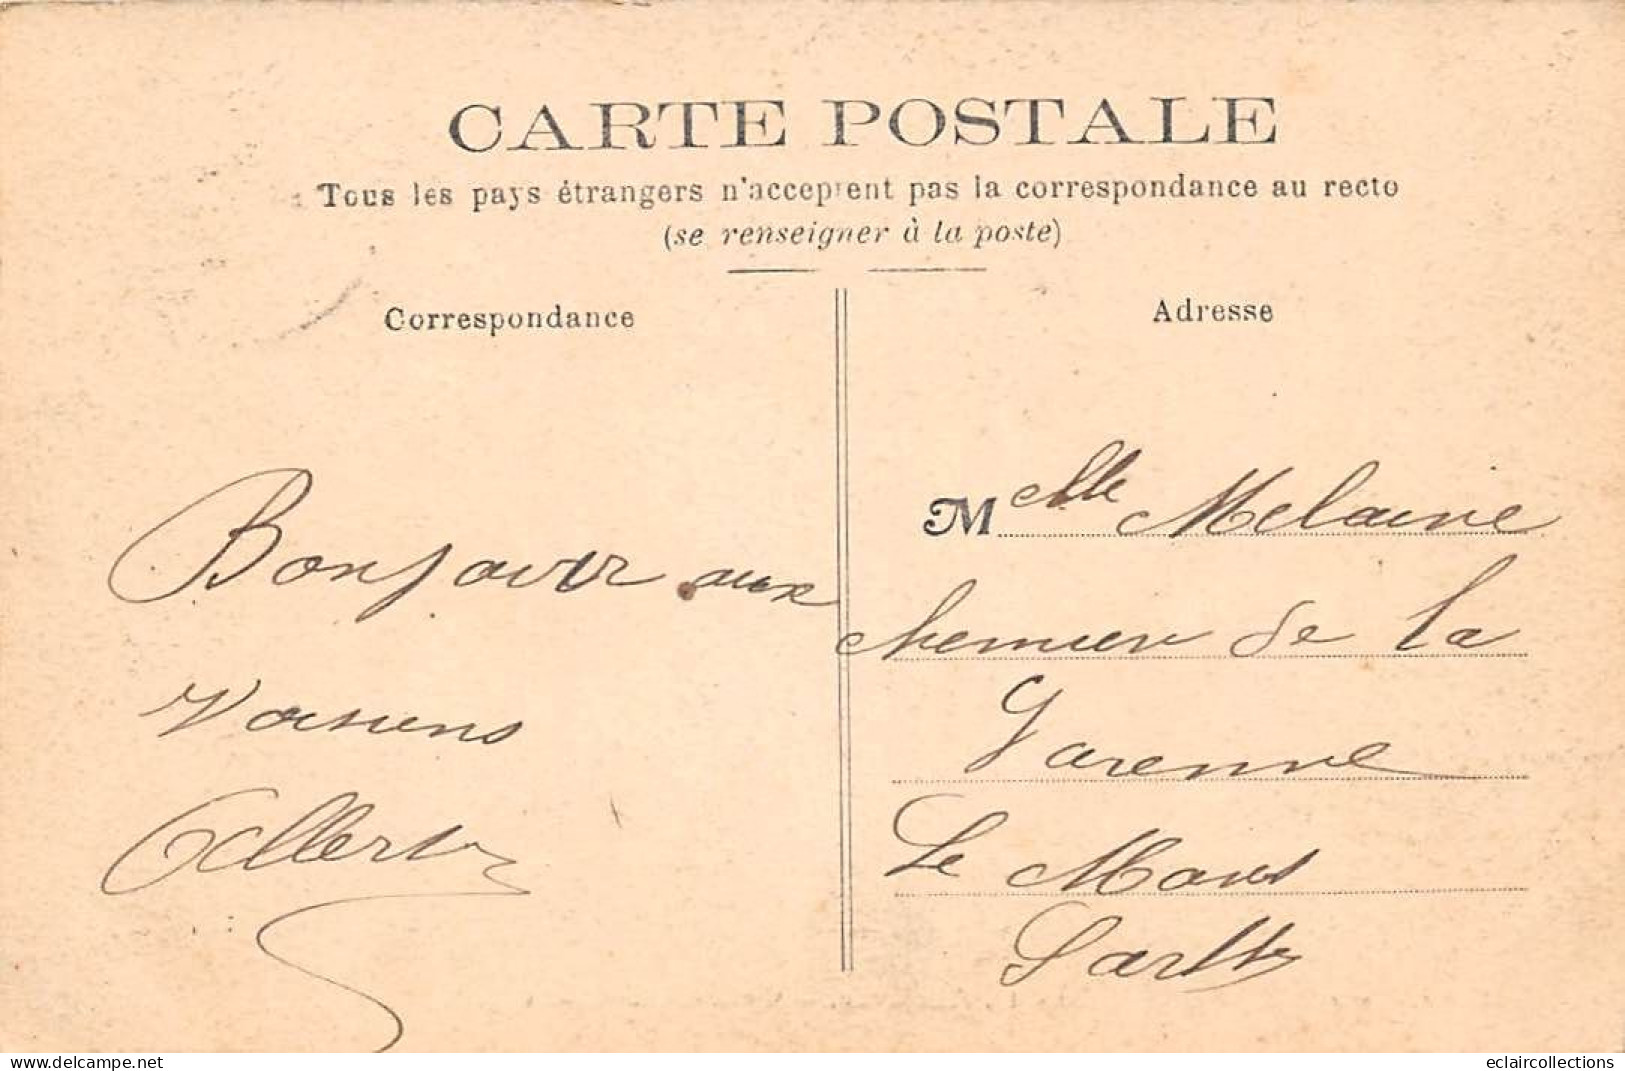 CARTE POSTALE
Tous les pays étrangers n'acceptent pas la correspondance au recto
(se renseigner à la poste)
Correspondance
Adresse
Bonjour aux
voisins
Albert
M elle Melanie
chemin de la
Varenne
Le Mans
Sarthe
delcampe.net
eclaircollections